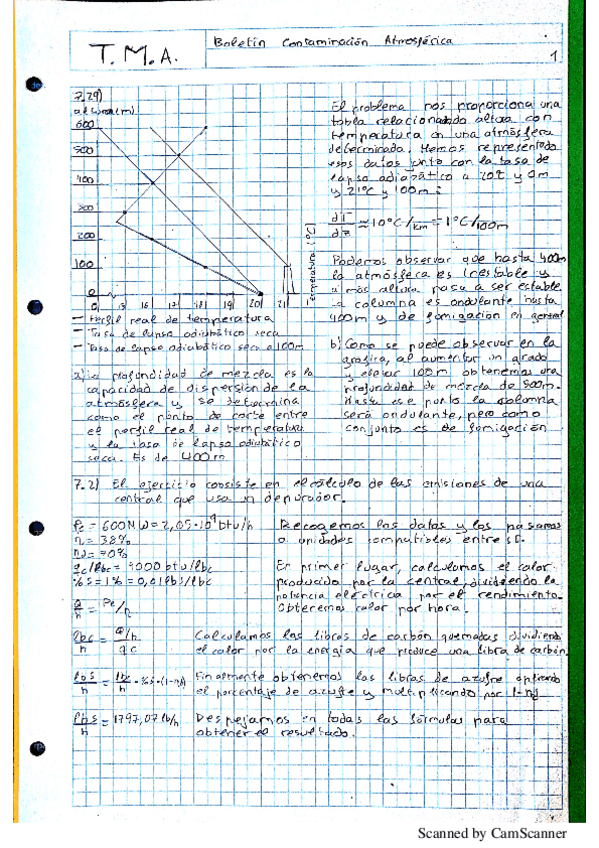 T.M.A.
Boletín Contaminación Atmosférica
1
7.29)
altura (m)
600
500
400
300
200
100
0
0 15 16 17 18 19 20 21
Temperatura (ºC)
— Perfil real de temperatura
— Tasa de lapso adiabático seca
— Tasa de lapso adiabático seca a 100m
a) La profundidad de mezcla es la
capacidad de dispersión de la
atmósfera y se determina
como el punto de corte entre
el perfil real de temperatura
y la tasa de lapso adiabático
seca. Es de 400m
El problema nos proporciona una
tabla relacionando altura con
temperatura en una atmósfera
determinada. Hemos representado
esos datos junto con la tasa de
lapso adiabático a 20ºC y 0m
y 21ºC y 100m:
dT/dz ≈ 10ºC/km = 1ºC/100m
Podemos observar que hasta 400m
la atmósfera es inestable y
a más altura pasa a ser estable
la columna es ondulante hasta
400m y de fumigación en general
b) Como se puede observar en la
gráfica, al aumentar un grado
y elevar 100m obtenemos una
profundidad de mezcla de 500m.
Hasta ese punto la columna
será ondulante, pero como
conjunto es de fumigación
7.2) El ejercicio consiste en el cálculo de las emisiones de una
central que usa un depurador.
Pe = 600MW = 2,05·10⁹ btu/h
η = 38%
ηd = 70%
qc/lbc = 9000 btu/lbc
%S = 1% = 0,01lbs/lbc
Recogemos los datos y los pasamos
a unidades compatibles entre sí.
Q/h = Pe/η
En primer lugar, calculamos el calor
producido por la central, dividiendo la
potencia eléctrica por el rendimiento.
Obtenemos calor por hora.
lbc/h = Q/h / qc
Calculamos las libras de carbón quemadas dividiendo
el calor por la energía que produce una libra de carbón.
lbs/h = lbc/h · %S · (1-ηd)
Finalmente obtenemos las libras de azufre aplicando
el porcentaje de azufre y multiplicando por 1-ηd
lbs/h = 1797,07lb/h
Despejamos en todas las fórmulas para
obtener el resultado.
Scanned by CamScanner